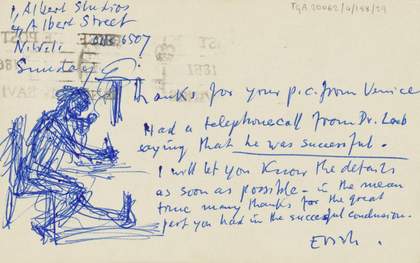 TGA 20062/4/198/29
1, Albert Studios
Albert Street
Sunday
Thanks for your p.c. from Venice
Had a telephonecall from Dr. Loeb
saying that he was successful.
I will let you know the details
as soon as possible - in the mean
time many thanks for the great
part you had in the successful conclusion.
Erich.